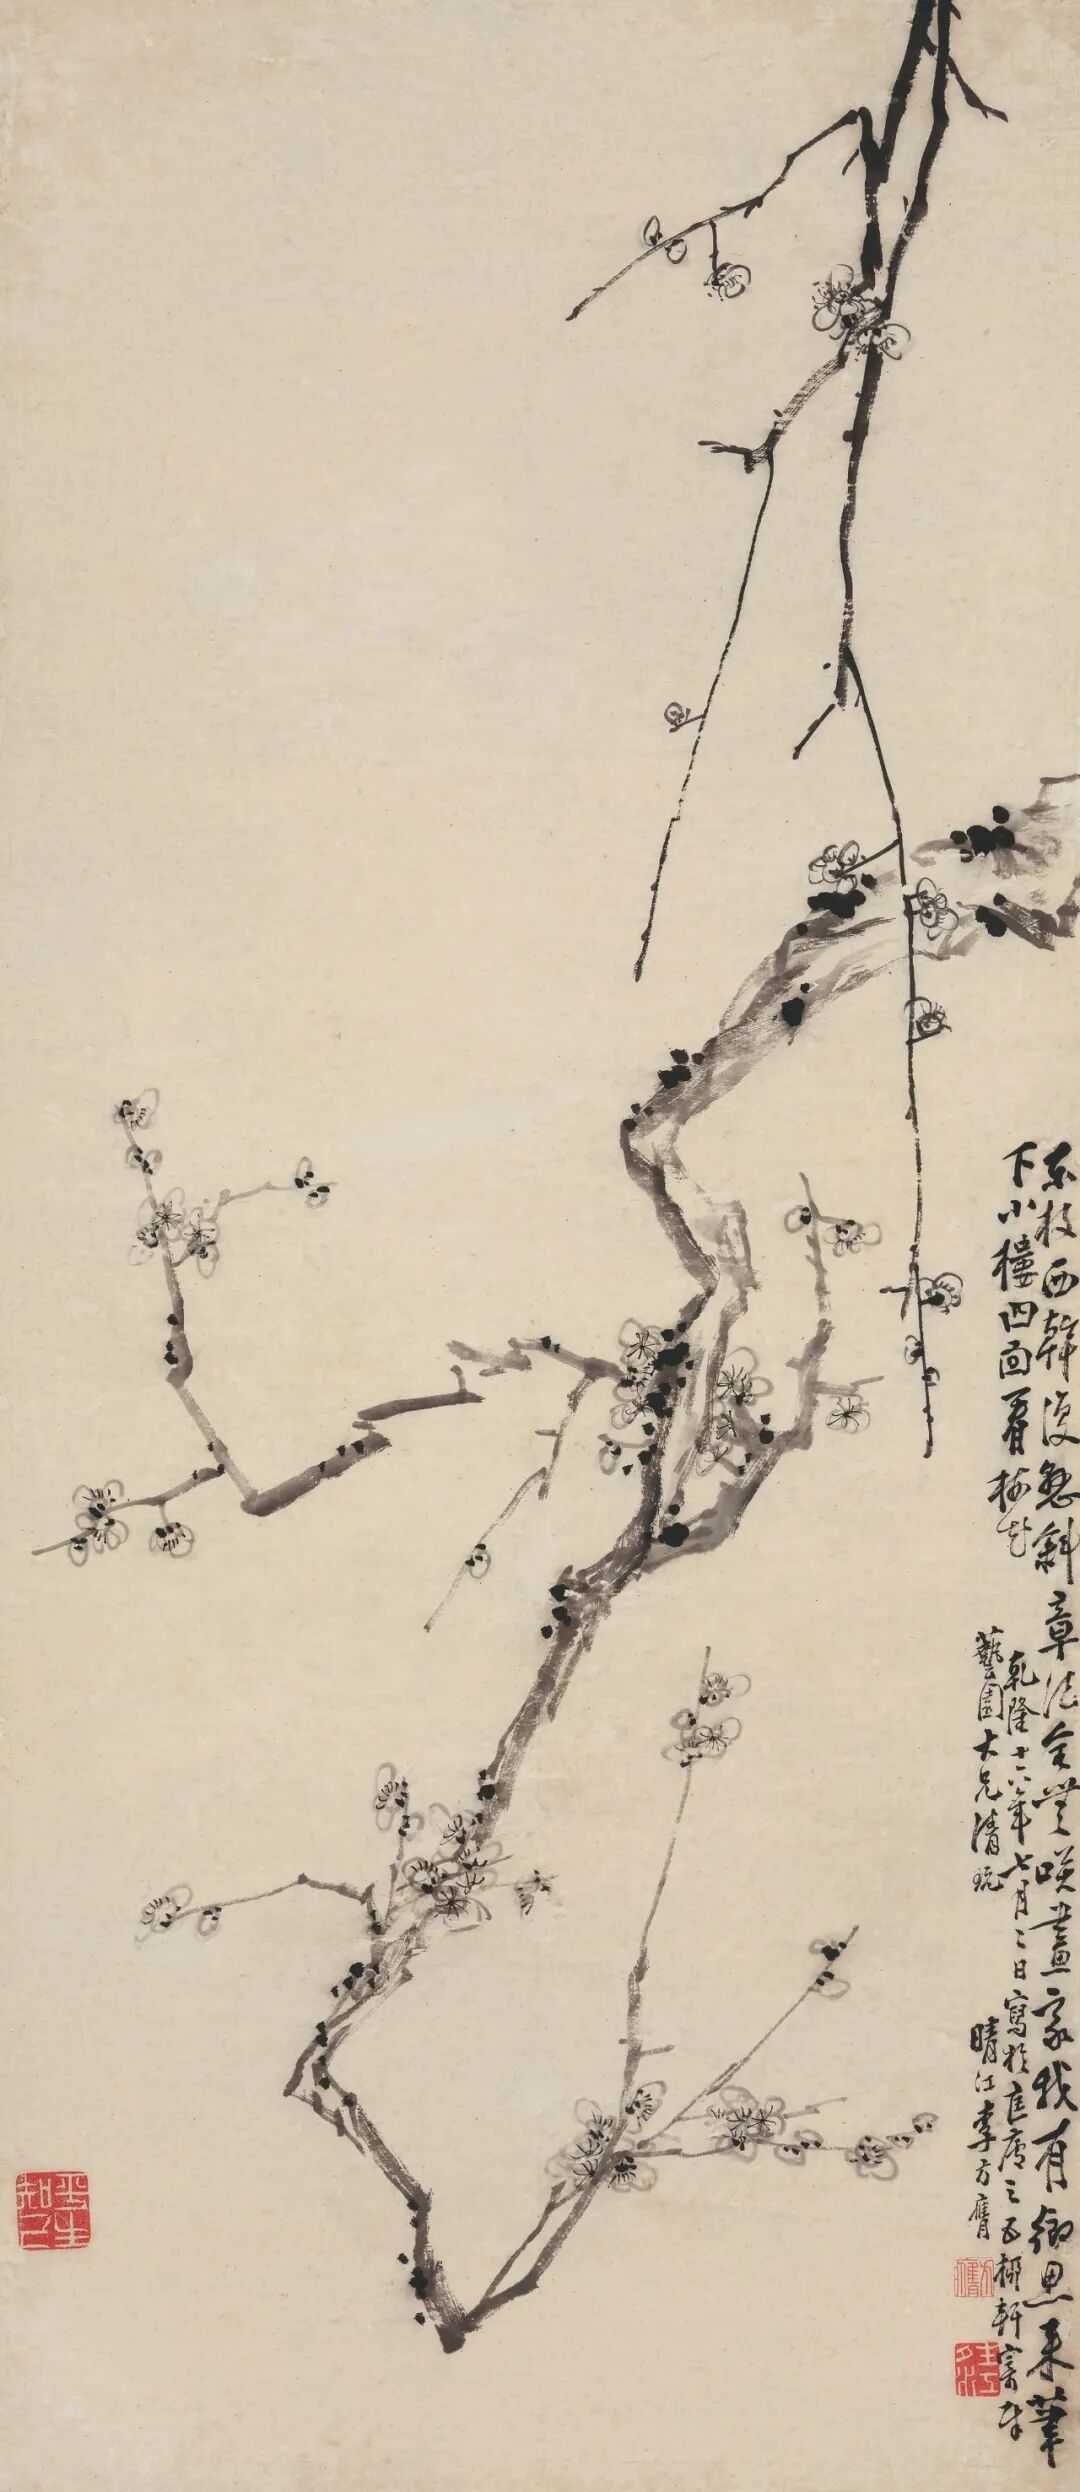 东枝西幹復斜章法全無咲畫家我有鄉思来筆
下小樓四面看梅花
乾隆十六年七月二日寫於匡廬之五柳軒
藝園大兄清玩 晴江李方膺
平生知己